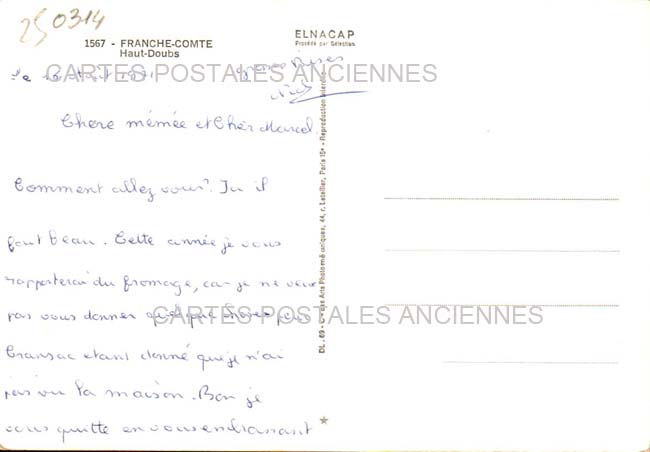 25 0314
1567 - FRANCHE-COMTE
Haut-Doubs
ELNACAP
Procédé par Sélection
CARTES POSTALES ANCIENNES
Le
Chere mémée et Cher Marcel.
Comment allez vous? Ju il
fait beau. Cette année je vous
rapporterai du fromage, car je ne veux
pas vous donner
CARTES POSTALES ANCIENNES
Cransac etant donné que je n'ai
pas vu la maison. Bon je
vous quitte en vous embrassant
Gros Bises
DL. 69 - Arts Photomécaniques, 44, r. Letellier, Paris 15e - Reproduction interdite